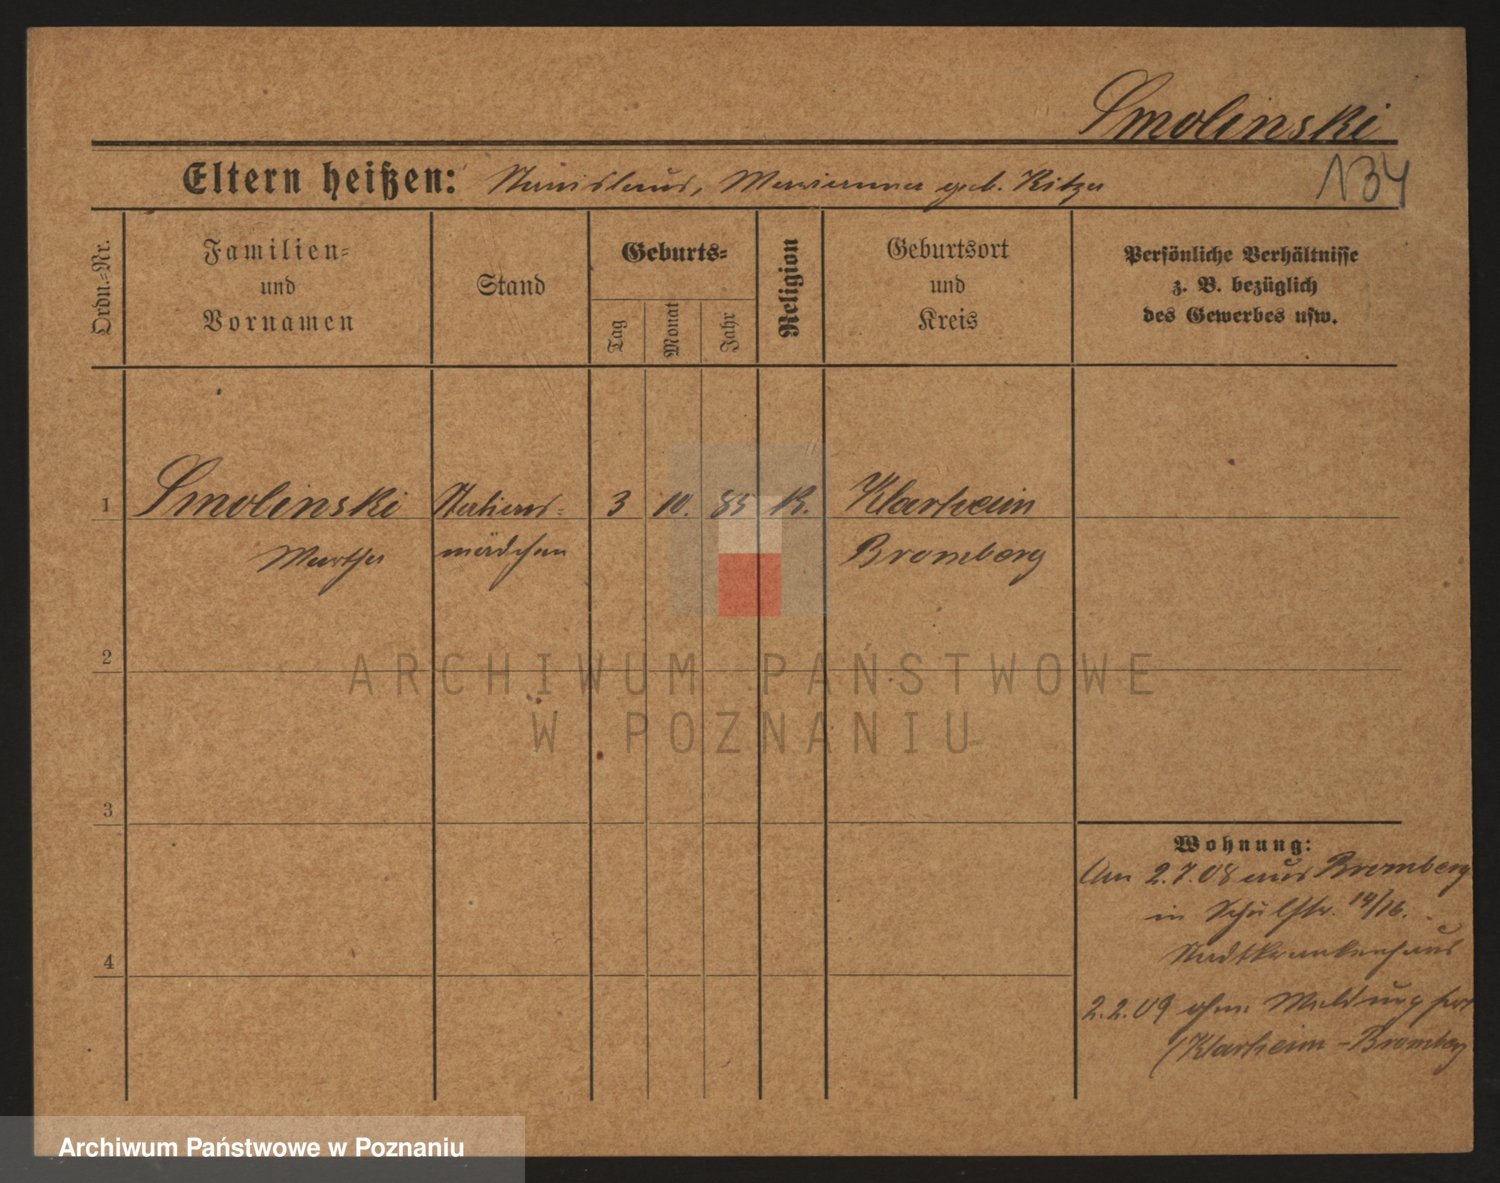 Smolinski
Eltern heißen: Stanislaus, Marianna geb. Kitza
134
Ordn.-Nr.
Familien-
und
Vornamen
Stand
Geburts-
Tag
Monat
Jahr
Religion
Geburtsort
und
Kreis
Persönliche Verhältnisse
z. B. bezüglich
des Gewerbes usw.
1 Smolinski Stations- 3 10. 85 K. Klarheim
Martha mädchen Bromberg
2
3
4
Wohnung:
Am 2.7.08 aus Bromberg
in Schulstr. 14/16.
Stadtkrankenhaus
2.2.09 ohne Meldung fort
Klarheim - Bromberg
ARCHIWUM PAŃSTWOWE
W POZNANIU
Archiwum Państwowe w Poznaniu